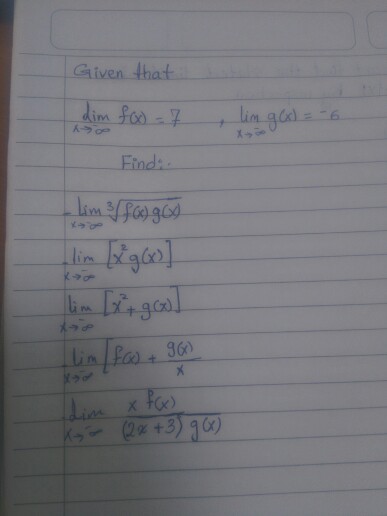 Given that
lim x→-∞ f(x) = 7 , lim x→-∞ g(x) = -6
Find:-
- lim x→-∞ ∛(f(x) g(x))
- lim x→-∞ [x² g(x)]
lim x→-∞ [x² + g(x)]
- lim x→-∞ [f(x) + g(x)/x
- lim x→-∞ x f(x) / (2x+3) g(x)